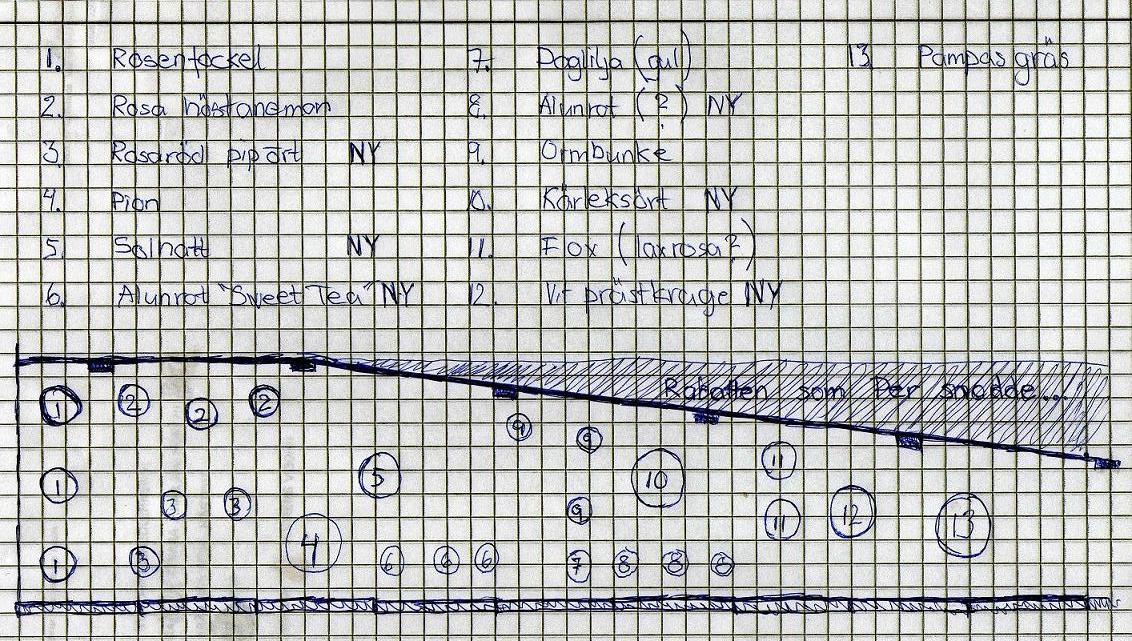 1. Rosentockel
2. Rosa höstanemon
3. Rosaröd pipört NY
4. Pion
5. Solhatt NY
6. Alunrot "Sweet Tea" NY
7. Daglilja (gul)
8. Alunrot (?) NY
9. Ormbunke
10. Kärleksört NY
11. Flox (laxrosa?)
12. Vit prästkrage NY
13. Pampas gräs
Rabatten som Per snodde...
1 2 2 2
9 9
1 3 3 5 9 10 11
11 12 13
1 3 4 6 6 6 7 8 8 8